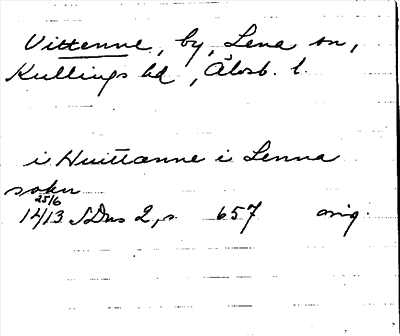 Vittenne, by, Lena sn,
Kullings hd, Älvsb. l.
i Huittænne i Lenna
sokn
25/6
1413 SDns 2, s. 657 orig.